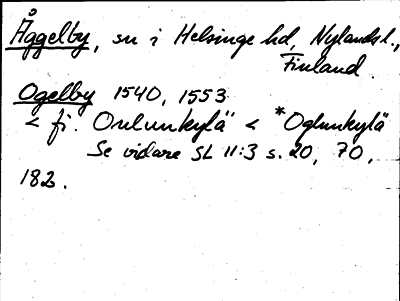 Åggelby, sn i Helsinge hd, Nylands l.,
Finland.
Ogelby 1540, 1553
< fi. Oulunkylä < *Oglunkylä
Se vidare SL 11:3 s. 20, 70,
182.